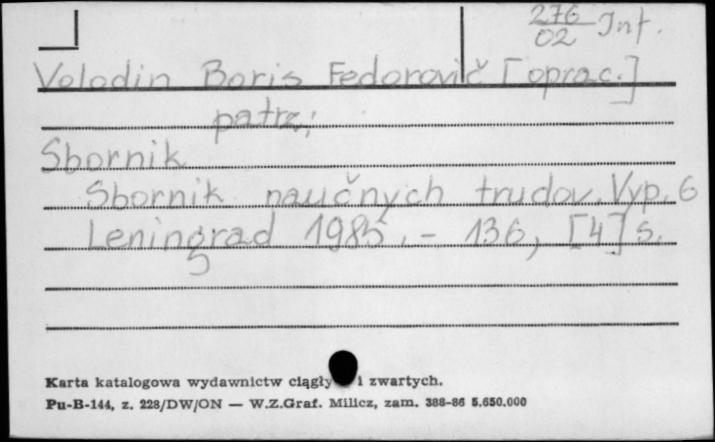 276 Inf.
02
Volodin Boris Fedorovič [oprac.]
patrz:
Sbornik
Sbornik naučnych trudov. Vyp. 6
Leningrad 1985. - 136, [4] s.
Karta katalogowa wydawnictw ciągły i zwartych.
Pu-B-144, z. 228/DW/ON — W.Z.Graf. Milicz, zam. 388-86 5.650.000